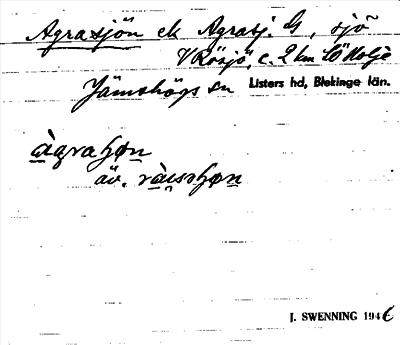 Agrasjön ek Agrasj. G, sjö
V Rösjö, c. 2 km SÖ Holje
Jämshögs sn Listers hd, Blekinge län.
àgraɧøn
äv. ràɩsɧøn
J. SWENNING 1946